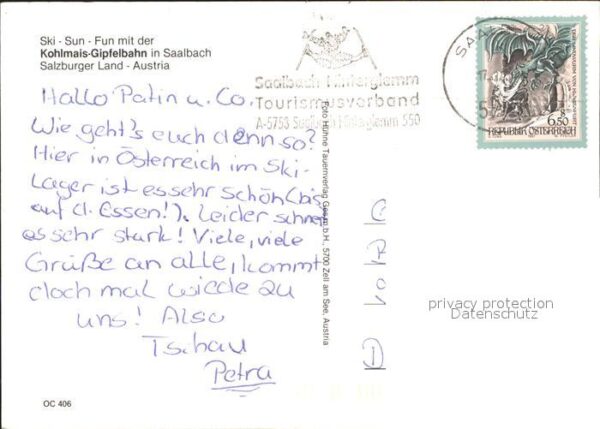 Ski - Sun - Fun mit der
Kohlmais-Gipfelbahn in Saalbach
Salzburger Land - Austria
Hallo Patin u. Co.
Wie geht's euch denn so?
Hier in Österreich im Ski-
Lager ist es sehr schön (bis
auf d. Essen!). Leider schneit
es sehr stark! Viele, viele
Grüße an alle, kommt
doch mal wiede zu
uns! Also
Tschau
Petra
OC 406
Foto Huhne Tauernverlag Ges.m.b.H., 5700 Zell am See, Austria
Saalbach Hinterglemm
Tourismusverband
A-5753 Saalbach Hinterglemm 550
SAA
6.50
REPUBLIK ÖSTERREICH
D
privacy protection
Datenschutz